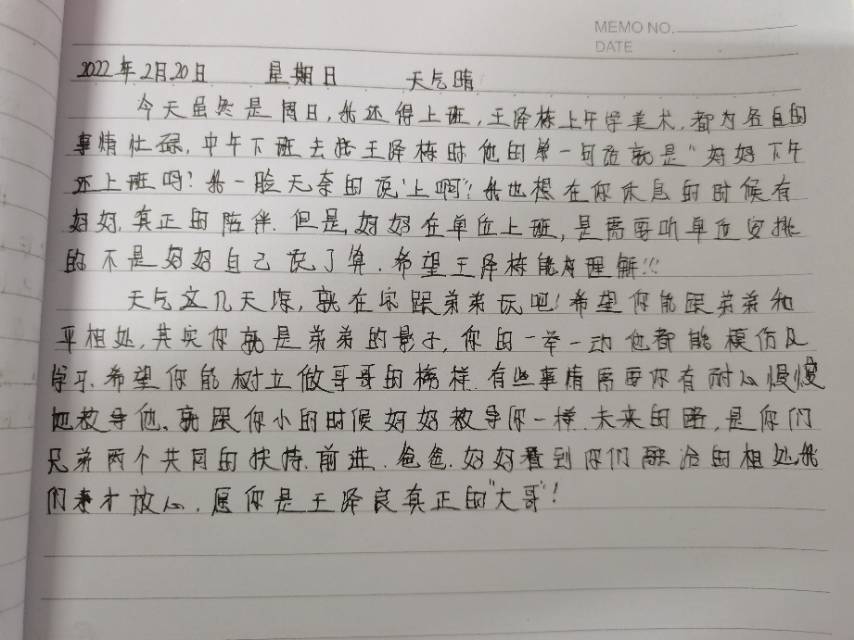 MEMO NO.
DATE
2022年2月20日 星期日 天气晴
今天虽然是周日,我还得上班,王泽栋上午学美术,都为各自的
事情忙碌,中午下班去接王泽栋时他的第一句话就是"好好下午
还上班吗?我一脸无奈的说"上啊"!我也想在你休息的时候有
好好,真正的陪伴.但是,好好在单位上班,是需要听单位安排
的不是好好自己说了算.希望王泽栋能够理解!!!
天气这几天冷,就在家跟弟弟玩吧!希望你能跟弟弟和
平相处,其实你就是弟弟的影子,你的一举一动他都能模仿及
学习.希望你能树立做哥哥的榜样.有些事情需要你有耐心慢慢
地教导他、就跟你小的时候好好教导你一样.未来的路,是你们
兄弟两个共同的扶持.前进.爸爸.好好看到你们融洽的相处我
们才放心.愿你是王泽良真正的"大哥"!